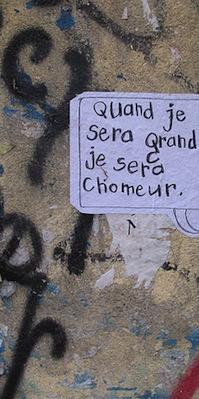 Quand je
sera Grand
je sera
Chomeur.